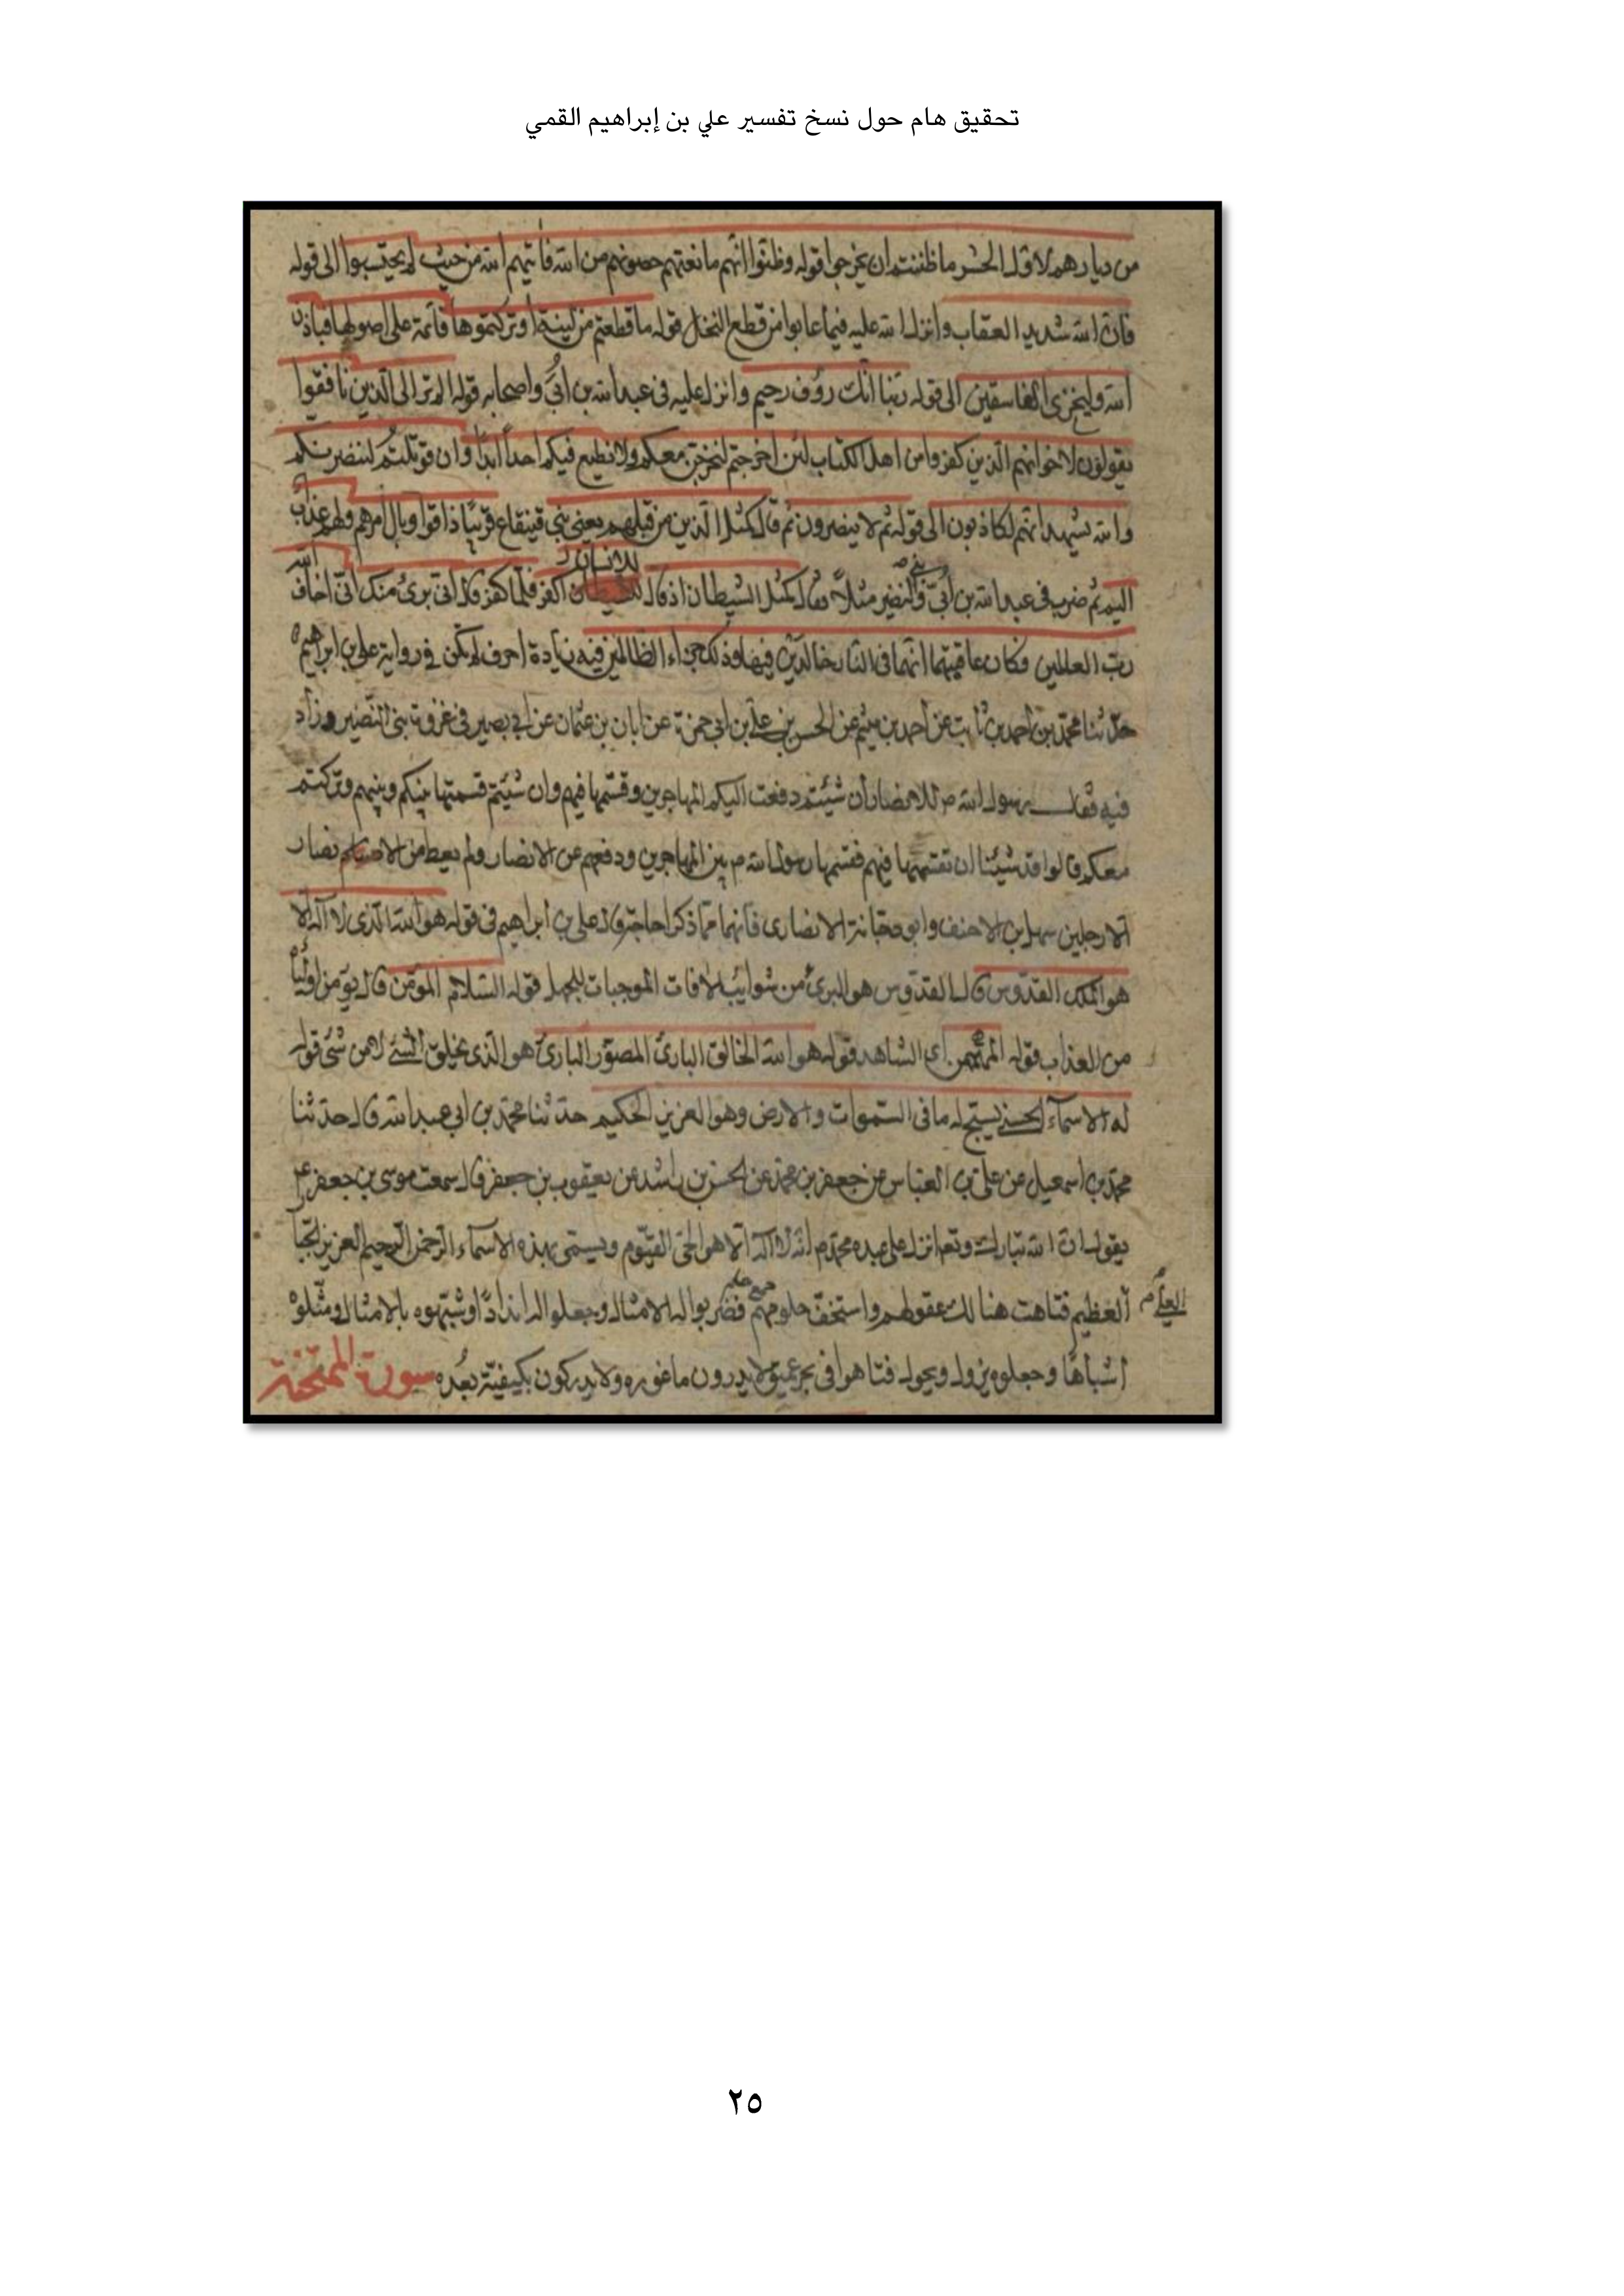 تحقيق هام حول نسخ تفسير علي بن إبراهيم القمي
من ديارهم لاول الحشر ما ظننتم ان يخرجوا قوله وظنوا انهم مانعتهم حصونهم من الله فأتيهم الله من حيث لم يحتسبوا الى قوله
فان الله شديد العقاب وانزل الله عليه فيما عابوا من قطع النخل قوله ما قطعتم من لينة او تركتموها قائمة على اصولها فباذن
الله وليخزى الفاسقين الى قوله ربنا انك رؤف رحيم وانزل عليه فى عبد الله بن أبىّ واصحابه قوله الم تر الى الذين نافقوا
يقولون لاخوانهم الذين كفروا من اهل الكتاب لئن اخرجتم لنخرجن معكم ولا نطيع فيكم احداً ابداً وان قوتلتم لننصرنكم
والله يشهد انهم لكاذبون الى قوله ثم لا ينصرون ثم قال كمثل الذين من قبلهم يعنى بنى قينقاع قريبًا ذاقوا وبال امرهم ولهم عذاب
للانسان
اليم ثم ضرب فى عبد الله بن أبىّ وبنى النضير مثلاً فقال كمثل الشيطان اذ قال اكفر فلما كفر قال انى برىء منك انى اخاف الله
ربّ العالمين فكان عاقبتهما انهما فى النار خالدين فيها وذلك جزاء الظالمين فيه زيادة احرف لم تكن فى رواية على بن ابراهيم
حدثنا محمد بن احمد بن ثابت عن احمد بن ميثم عن الحسن بن على بن ابي حمزة عن ابان بن عثمان عن ابي بصير فى غزوة بنى النضير وزاد
فيه فقال رسول الله ص للانصار ان شئتم دفعت اليكم المهاجرين وقسمتها فيهم وان شئتم قسمتها بينكم وبينهم وتركتهم
معكم قالوا قد شئنا ان تقسمها فيهم فقسمها رسول الله ص بين المهاجرين ودفعهم عن الانصار ولم يعط من الانصار
الا رجلين سهل بن الاحنف وابو دجانة الانصارى فانهما ممّا ذكرا حاجة قال على بن ابراهيم فى قوله هو الله الذى لا اله الا
هو الملك القدّوس قال القدّوس هو البرىء من شوايب الافات الموجبات للجهل قوله السلام المؤمن قال يؤمن اولياءه
من العذاب قوله المهيمن اى الشاهد قوله هو الله الخالق البارئ المصوّر البارئ هو الذى يخلق الشىء لا من شىء قوله
له الاسماء الحسنى يسبّح له ما فى السموات والارض وهو العزيز الحكيم حدثنا محمد بن ابي عبد الله قال حدثنا
محمد بن اسمعيل عن على بن العباس عن جعفر بن محمد عن الحسن بن راشد عن يعقوب بن جعفر قال سمعت موسى بن جعفر ع
يقول ان الله تبارك وتعالى انزل على عبده محمد ص انه لا اله الا هو الحىّ القيّوم ويسمى بهذه الاسماء الرحمن الرحيم العزيز الجبار
العلىّ العظيم فتاهت هنالك عقولهم واستخفّ حلومهم فضربوا له الامثال وجعلوا له انداداً وشبّهوه بالامثال ومثّلوه
اشباهًا وجعلوه يزول ويحول فتاهوا فى بحر عميق لا يدرون ما غوره ولا يدركون بكيفيّة بُعده سورة الممتحنة
٢٥